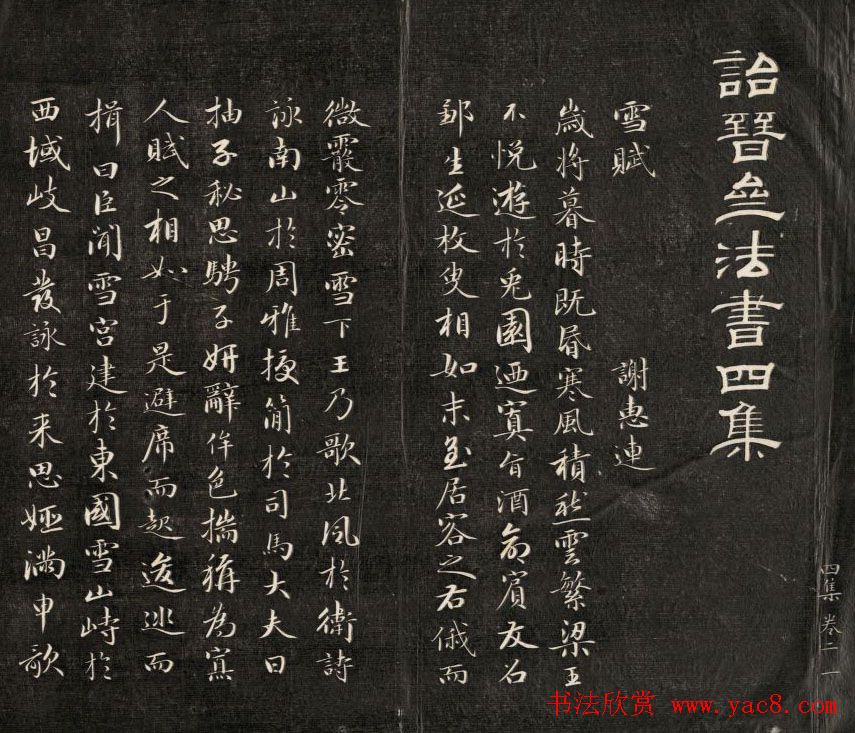 詒晉齋法書四集
雪賦 謝惠連
歲將暮時既昏寒風積愁雲繁梁王
不悅遊於兔園迺寘旨酒命賓友召
鄒生延枚叟相如末至居客之右俄而
微霰零密雪下王乃歌北風於衛詩
詠南山於周雅授簡於司馬大夫曰
抽子秘思騁子妍辭侔色揣稱為寡
人賦之相如于是避席而起逡巡而
揖曰臣聞雪宮建於東國雪山峙於
西域岐昌發詠於来思姬滿申歌
四集 卷二 一
书法欣赏 www.yac8.com